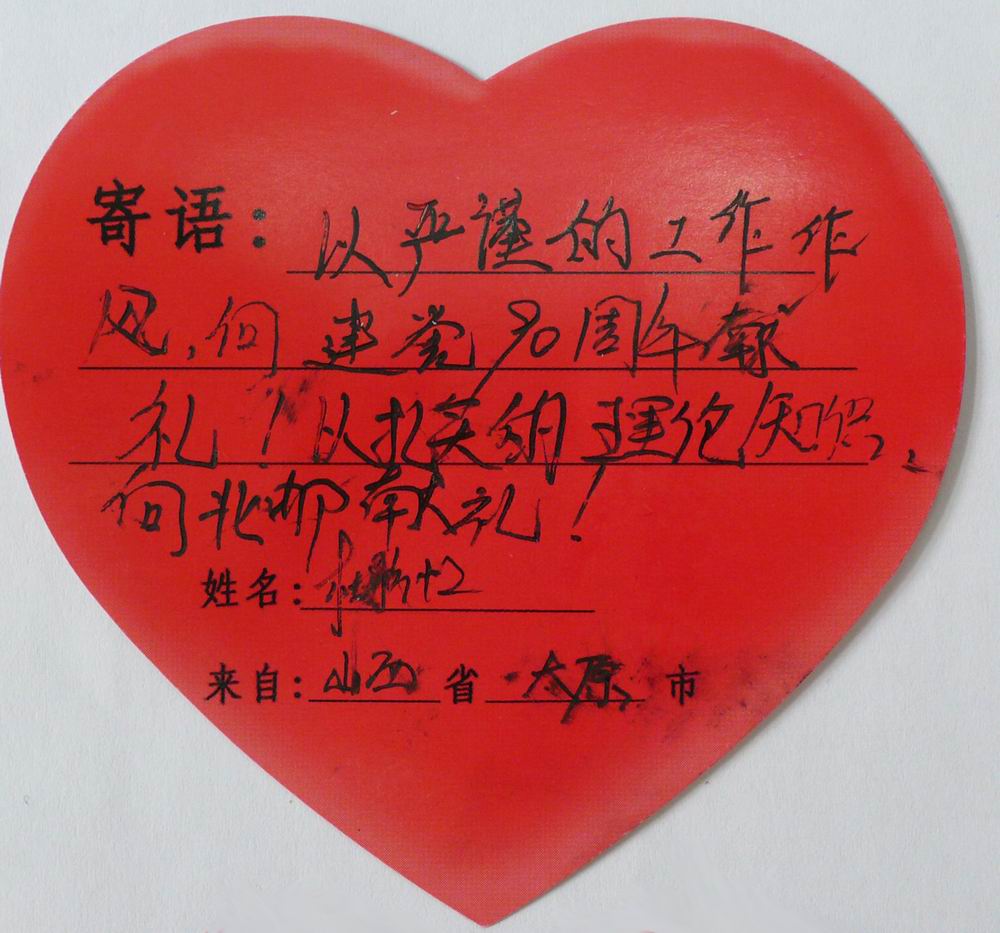 寄语：以严谨的工作作
风，向建党90周年献
礼！以扎实的理论知识，
向北邮献礼！
姓名：杜
来自：山西省太原市